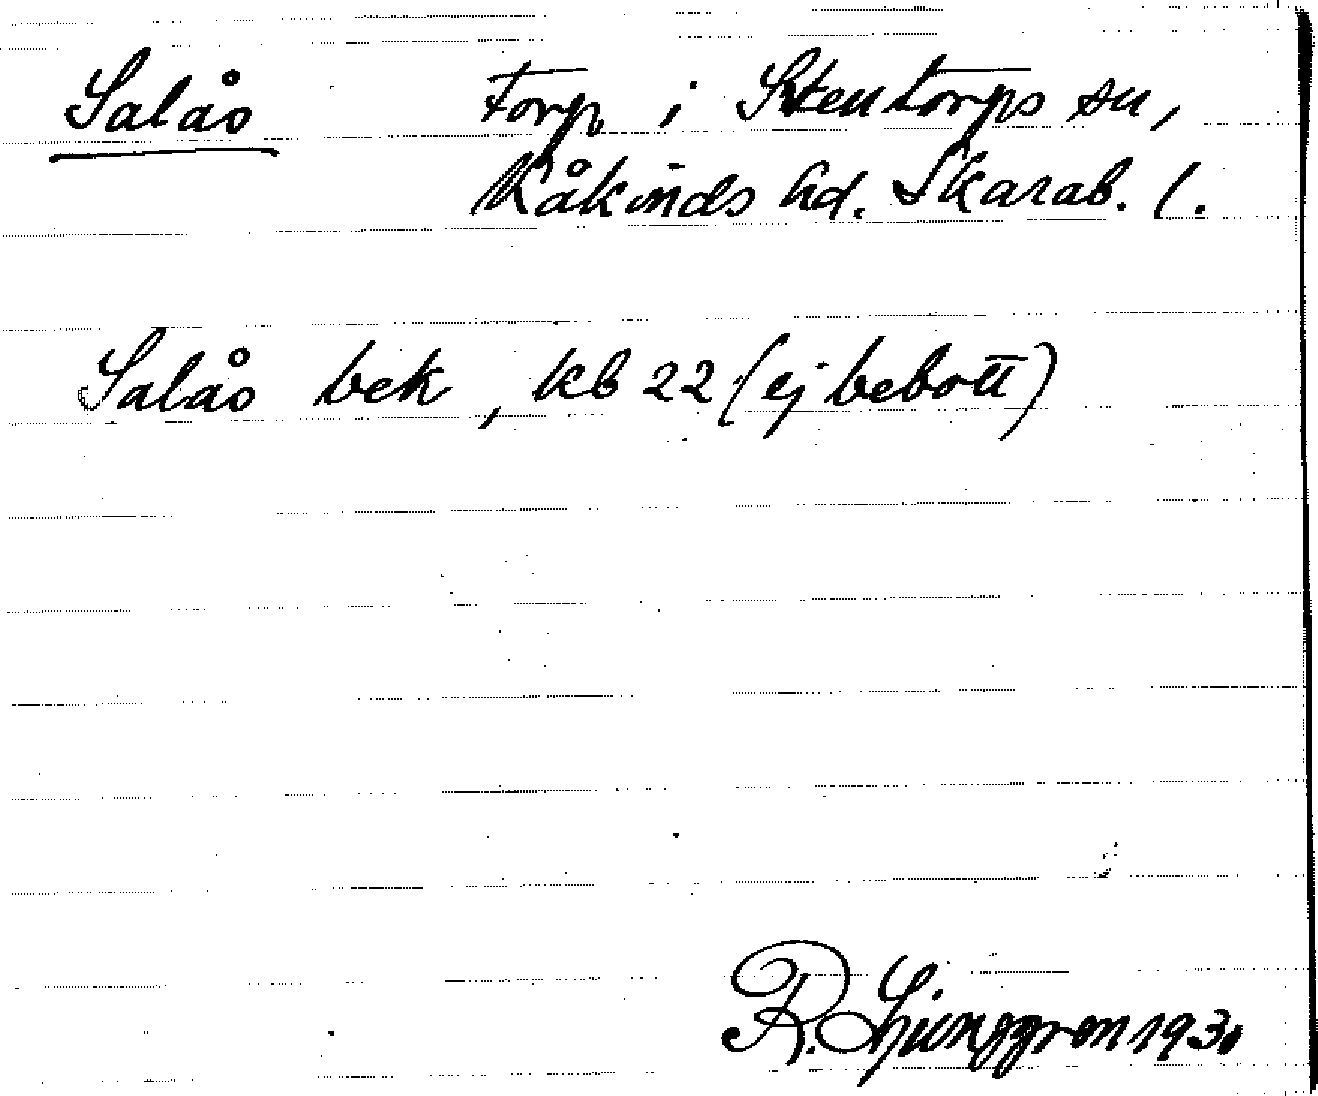 Salås Torp i Stentorps sn,
Kåkinds hd. Skarab. l.
Salås bek, kb 22 (ej bebott)
R. Ljunggren 1930